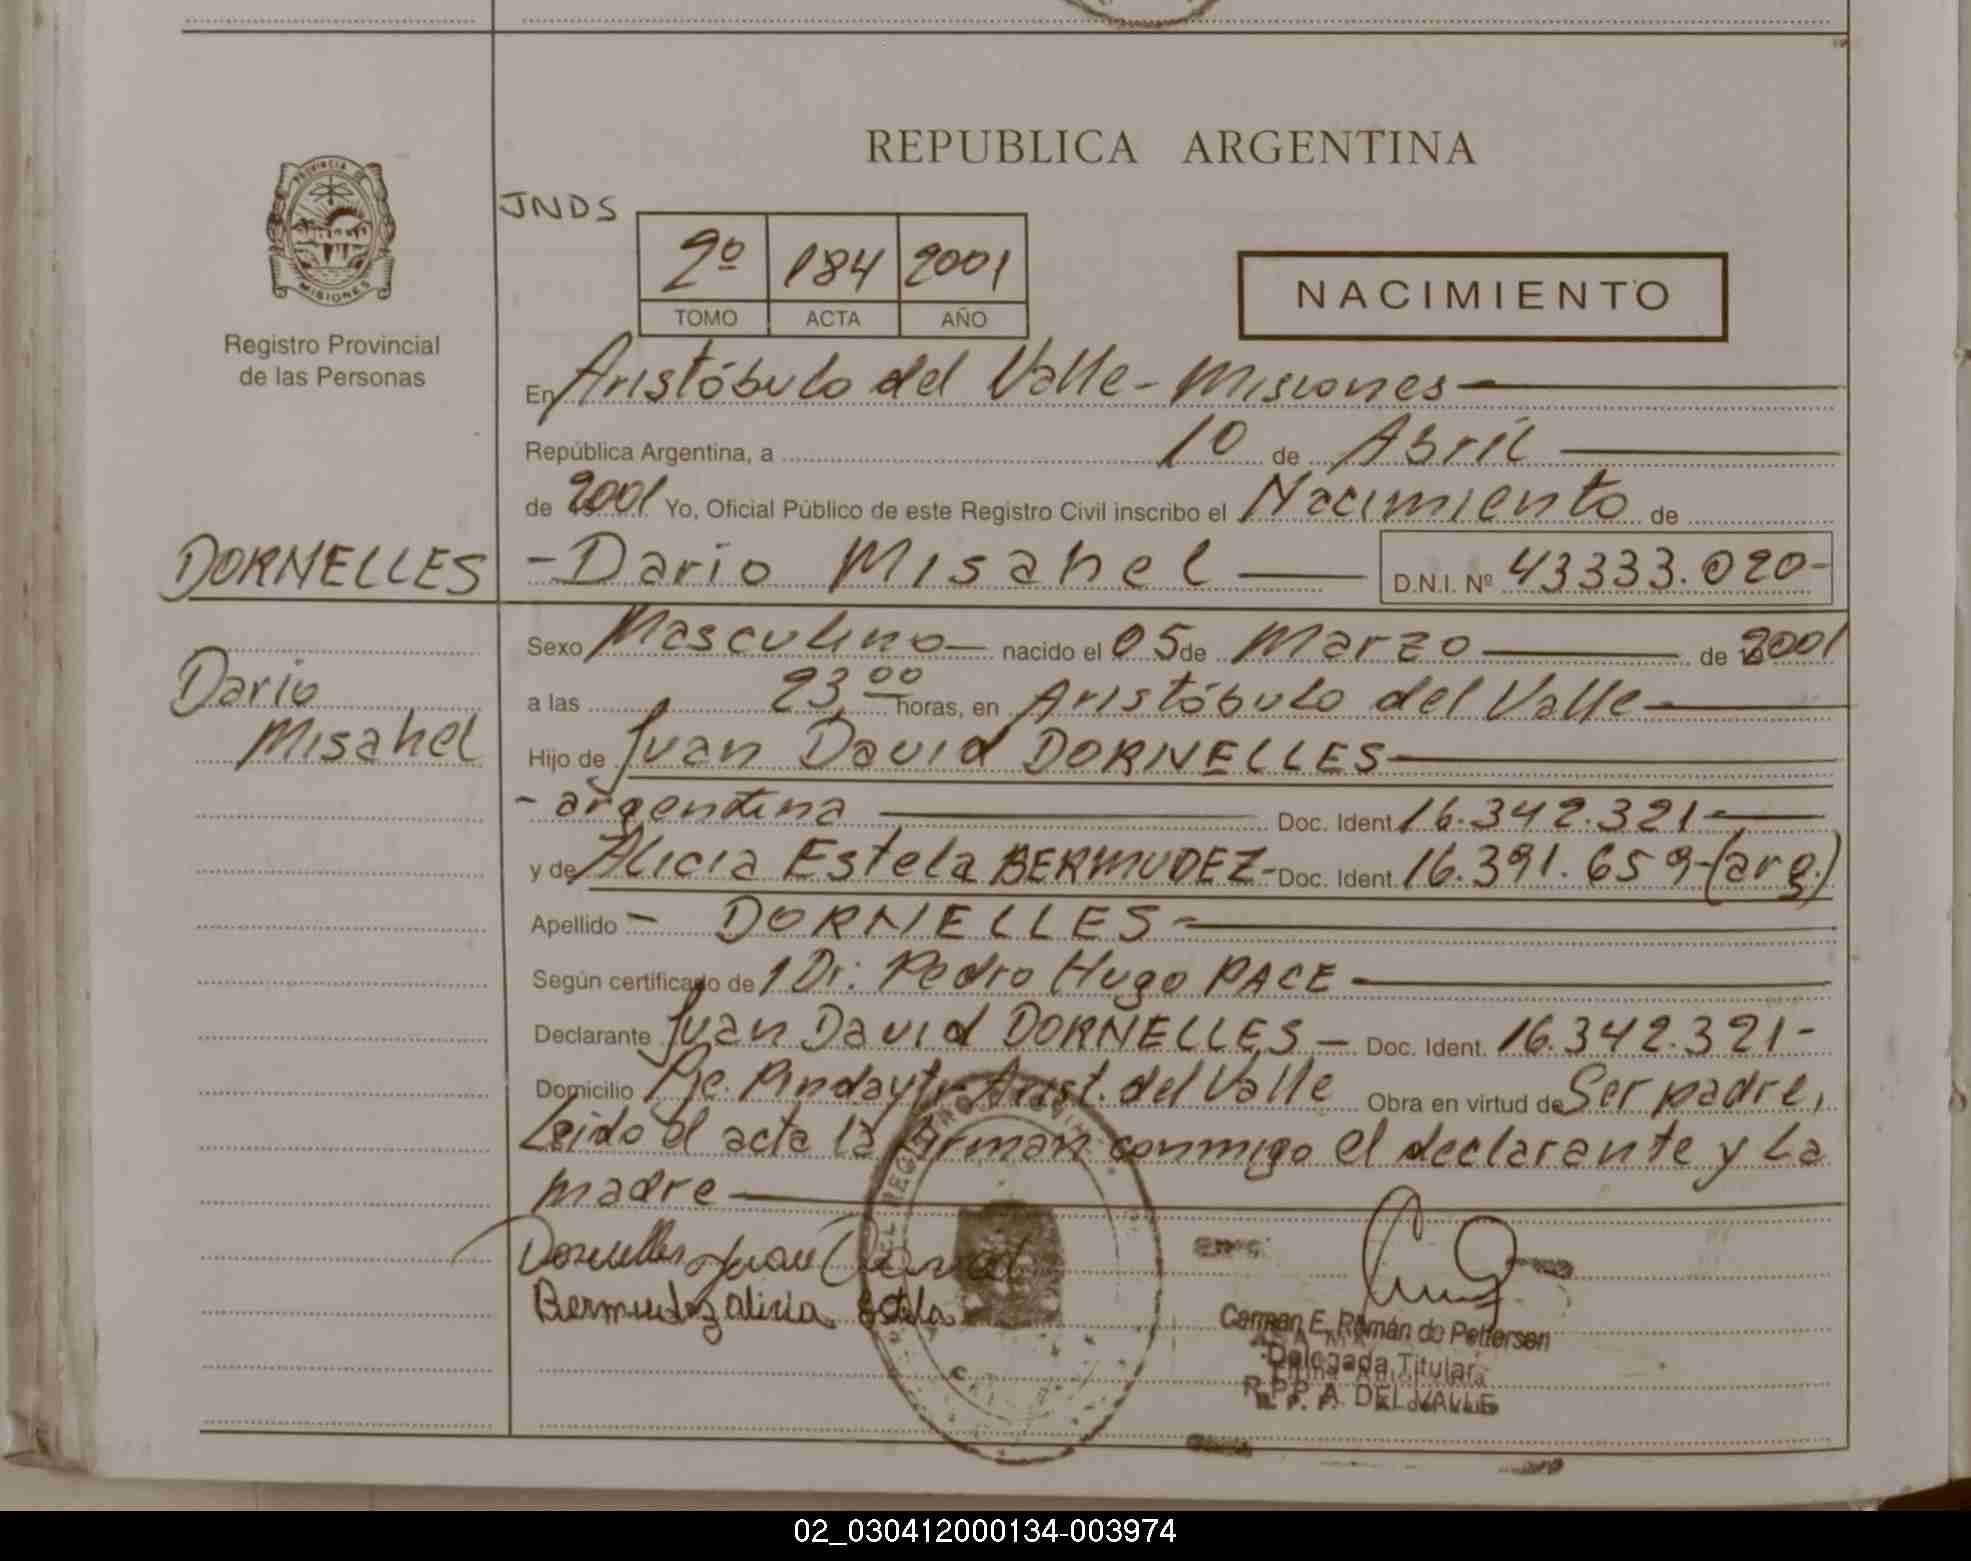 REPUBLICA ARGENTINA
PROVINCIA DE
MISIONES
Registro Provincial
de las Personas
JNDS
2º 184 2001
TOMO ACTA AÑO
NACIMIENTO
En Aristóbulo del Valle - Misiones
República Argentina, a 10 de Abril
de 2001 Yo, Oficial Público de este Registro Civil inscribo el Nacimiento de
DORNELLES
- Dario Misahel D.N.I. Nº 43333.020-
Dario
Misahel
Sexo Masculino nacido el 05 de Marzo de 2001
a las 23,00 horas, en Aristóbulo del Valle
Hijo de Juan David DORNELLES
- argentina Doc. Ident. 16.342.321-
y de Alicia Estela BERMUDEZ- Doc. Ident. 16.391.659-(arg.)
Apellido - DORNELLES-
Según certificado de 1 Dr: Pedro Hugo PACE
Declarante Juan David DORNELLES - Doc. Ident. 16.342.321-
Domicilio Pje. Pindayty Arist. del Valle Obra en virtud de Ser padre,
Leido el acta la firman conmigo el declarante y La
madre
Dornelles Juan David
Bermudez alicia Estela
Carmen E. Román de Pettersen
Delegada Titular
R.P.P. A. DEL VALLE
02_030412000134-003974